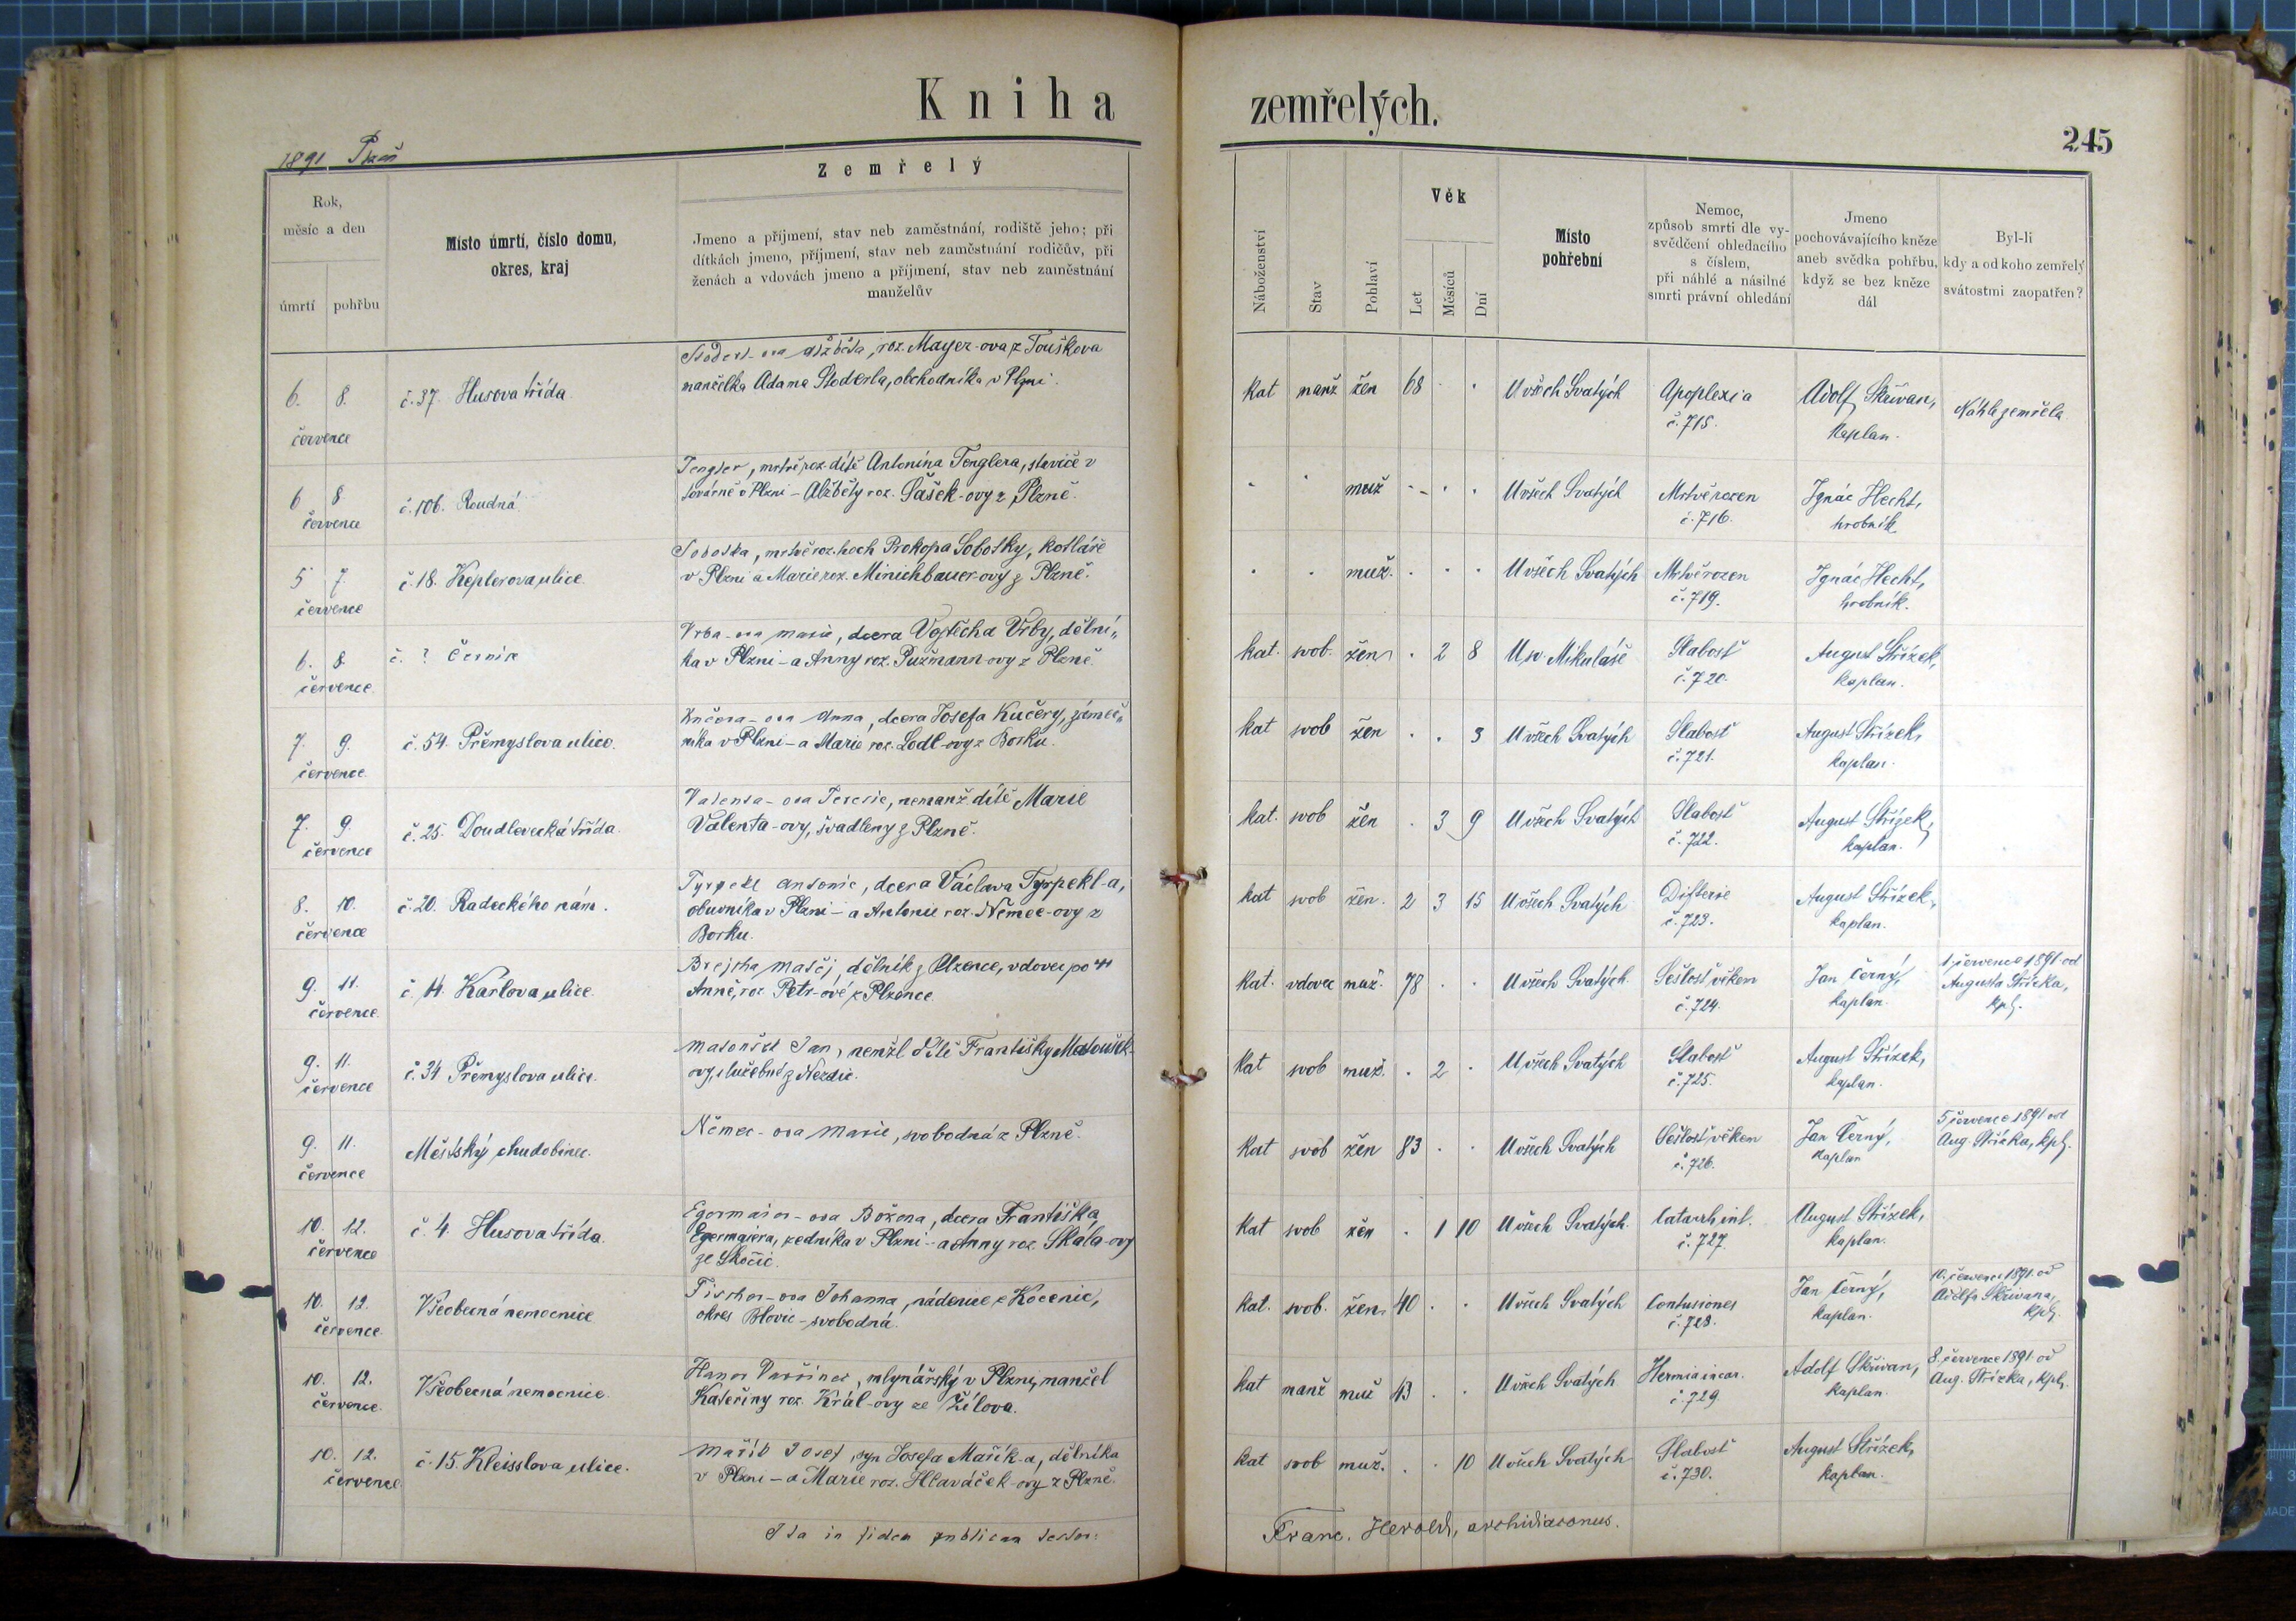 Kniha zemřelých.
245
1891 Plzeň
Zemřelý
Rok,
měsíc a den
úmrtí
pohřbu
Místo úmrtí, číslo domu,
okres, kraj
Jmeno a příjmení, stav neb zaměstnání, rodiště jeho; při
dítkách jmeno, příjmení, stav neb zaměstnání rodičův, při
ženách a vdovách jmeno a příjmení, stav neb zaměstnání
manželův
Náboženství
Stav
Pohlaví
Věk
Let
Měsíců
Dní
Místo
pohřební
Nemoc,
způsob smrti dle vy-
svědčení ohledacího
s číslem,
při náhlé a násilné
smrti právní ohledání
Jmeno
pochovávajícího kněze
aneb svědka pohřbu,
když se bez kněze
dál
Byl-li
kdy a od koho zemřelý
svátostmi zaopatřen?
6. 8.
července
č. 37. Husova třída.
Stoderl-ova Alžběta, roz. Mayer-ova z Touškova
manželka Adama Stoderla, obchodníka v Plzni.
kat manž žen 68 . .
U všech Svatých
Apoplexia
č. 715.
Adolf Skřivan,
kaplan.
Náhle zemřela
6 8
července
č. 106. Roudná.
Tengler, mrtvě roz. dítě Antonína Tenglera, slaviče v
továrně v Plzni – Alžběty roz. Sašek-ovy z Plzně.
. . muž . . .
U všech Svatých
Mrtvě rozen
č. 716.
Ignác Hecht,
hrobník
5 7.
července
č. 18. Keplerova ulice.
Sobotka, mrtvě roz. hoch Prokopa Sobotky, kotláře
v Plzni a Marie roz. Minichbauer-ovy z Plzně.
. . muž. . . .
U všech Svatých
Mrtvě rozen
č. 719.
Ignác Hecht,
hrobník.
6. 8.
července.
č. ? Černice
Vrba-ova Marie, dcera Vojtěcha Vrby, dělní„
ka v Plzni – a Anny roz. Pužmann-ovy z Plzně.
kat. svob. žen . 2 8
U sv. Mikuláše
Slabosť
č. 720.
August Střízek,
kaplan.
7. 9.
července.
č. 54. Přemyslova ulice.
Kučera-ova Anna, dcera Josefa Kučery, zámeč„
níka v Plzni – a Marie roz. Lodl-ovy z Borku.
kat svob žen . . 3
U všech Svatých
Slabosť
č. 721.
August Střízek,
kaplan.
7. 9.
července
č. 25. Doudlevecká třída.
Valenta-ova Terezie, nemanž. dítě Marie
Valenta-ovy, švadleny z Plzně.
kat. svob žen . 3 9
U všech Svatých
Slabosť
č. 722.
August Střízek,
kaplan.
8. 10.
července
č. 20. Radeckého nám.
Tyrpekl Antonie, dcera Václava Tyrpekl-a,
obuvníka v Plzni – a Antonie roz. Němec-ovy z
Borku.
kat svob žen. 2 3 15
U všech Svatých
Difterie
č. 723.
August Střízek,
kaplan.
9. 11.
července.
č. 14. Karlova ulice.
Brejcha Matěj, dělník z Plzence, vdovec po
Anně, roz. Petr-ové z Plzence.
kat. vdovec muž. 78 . .
U všech Svatých.
Sešlosť věkem
č. 724.
Jan Černý,
kaplan.
1. července 1891. od
Augusta Střízka,
kpl.
9. 11.
července
č. 34 Přemyslova ulice.
Matoušek Jan, nemžl. dítě Františky Matoušek-
ovy, služebné z Nezdic.
kat svob muž. . 2 .
U všech Svatých
Slabosť
č. 725.
August Střízek,
kaplan.
9. 11.
července
Městský chudobinec.
Němec-ova Marie, svobodná z Plzně.
kat svob žen 83 . .
U všech Svatých
Sešlosť věkem
č. 726.
Jan Černý,
kaplan
5 července 1891. od
Aug. Střízka, kpl.
10. 12.
července
č. 4. Husova třída.
Egermaier-ova Božena, dcera Františka
Egermaiera, zedníka v Plzni – a Anny roz. Skála-ovy
ze Skočic.
kat svob žen . 1 10
U všech Svatých.
Catarrh. int.
č. 727.
August Střízek,
kaplan.
10. 12.
července.
Všeobecná nemocnice
Fischer-ova Johanna, nádenice z Kocenic,
okres Blovic – svobodná.
kat. svob. žen. 40 . .
U všech Svatých
Contusiones
č. 728.
Jan Černý,
kaplan.
10. července 1891. od
Adolfa Skřivana,
kpl.
10. 12.
července.
Všeobecná nemocnice.
mlynářský v Plzni, manžel
Kateřiny roz. Král-ovy ze Žilova.
kat manž muž 43 . .
U všech Svatých
Hernia incar.
č. 729.
Adolf Skřivan,
kaplan.
8. července 1891. od
Aug. Střízka, kpl.
10. 12.
července.
č. 15. Kleisslova ulice.
Mařík Josef, syn Josefa Mařík-a, dělníka
v Plzni – a Marie roz. Hlaváček-ovy z Plzně.
kat svob muž. . . 10
U všech Svatých
Slabosť
č. 730.
August Střízek,
kaplan.
Ita in fidem publicam testor:
Franc. Herold, archidiaconus.